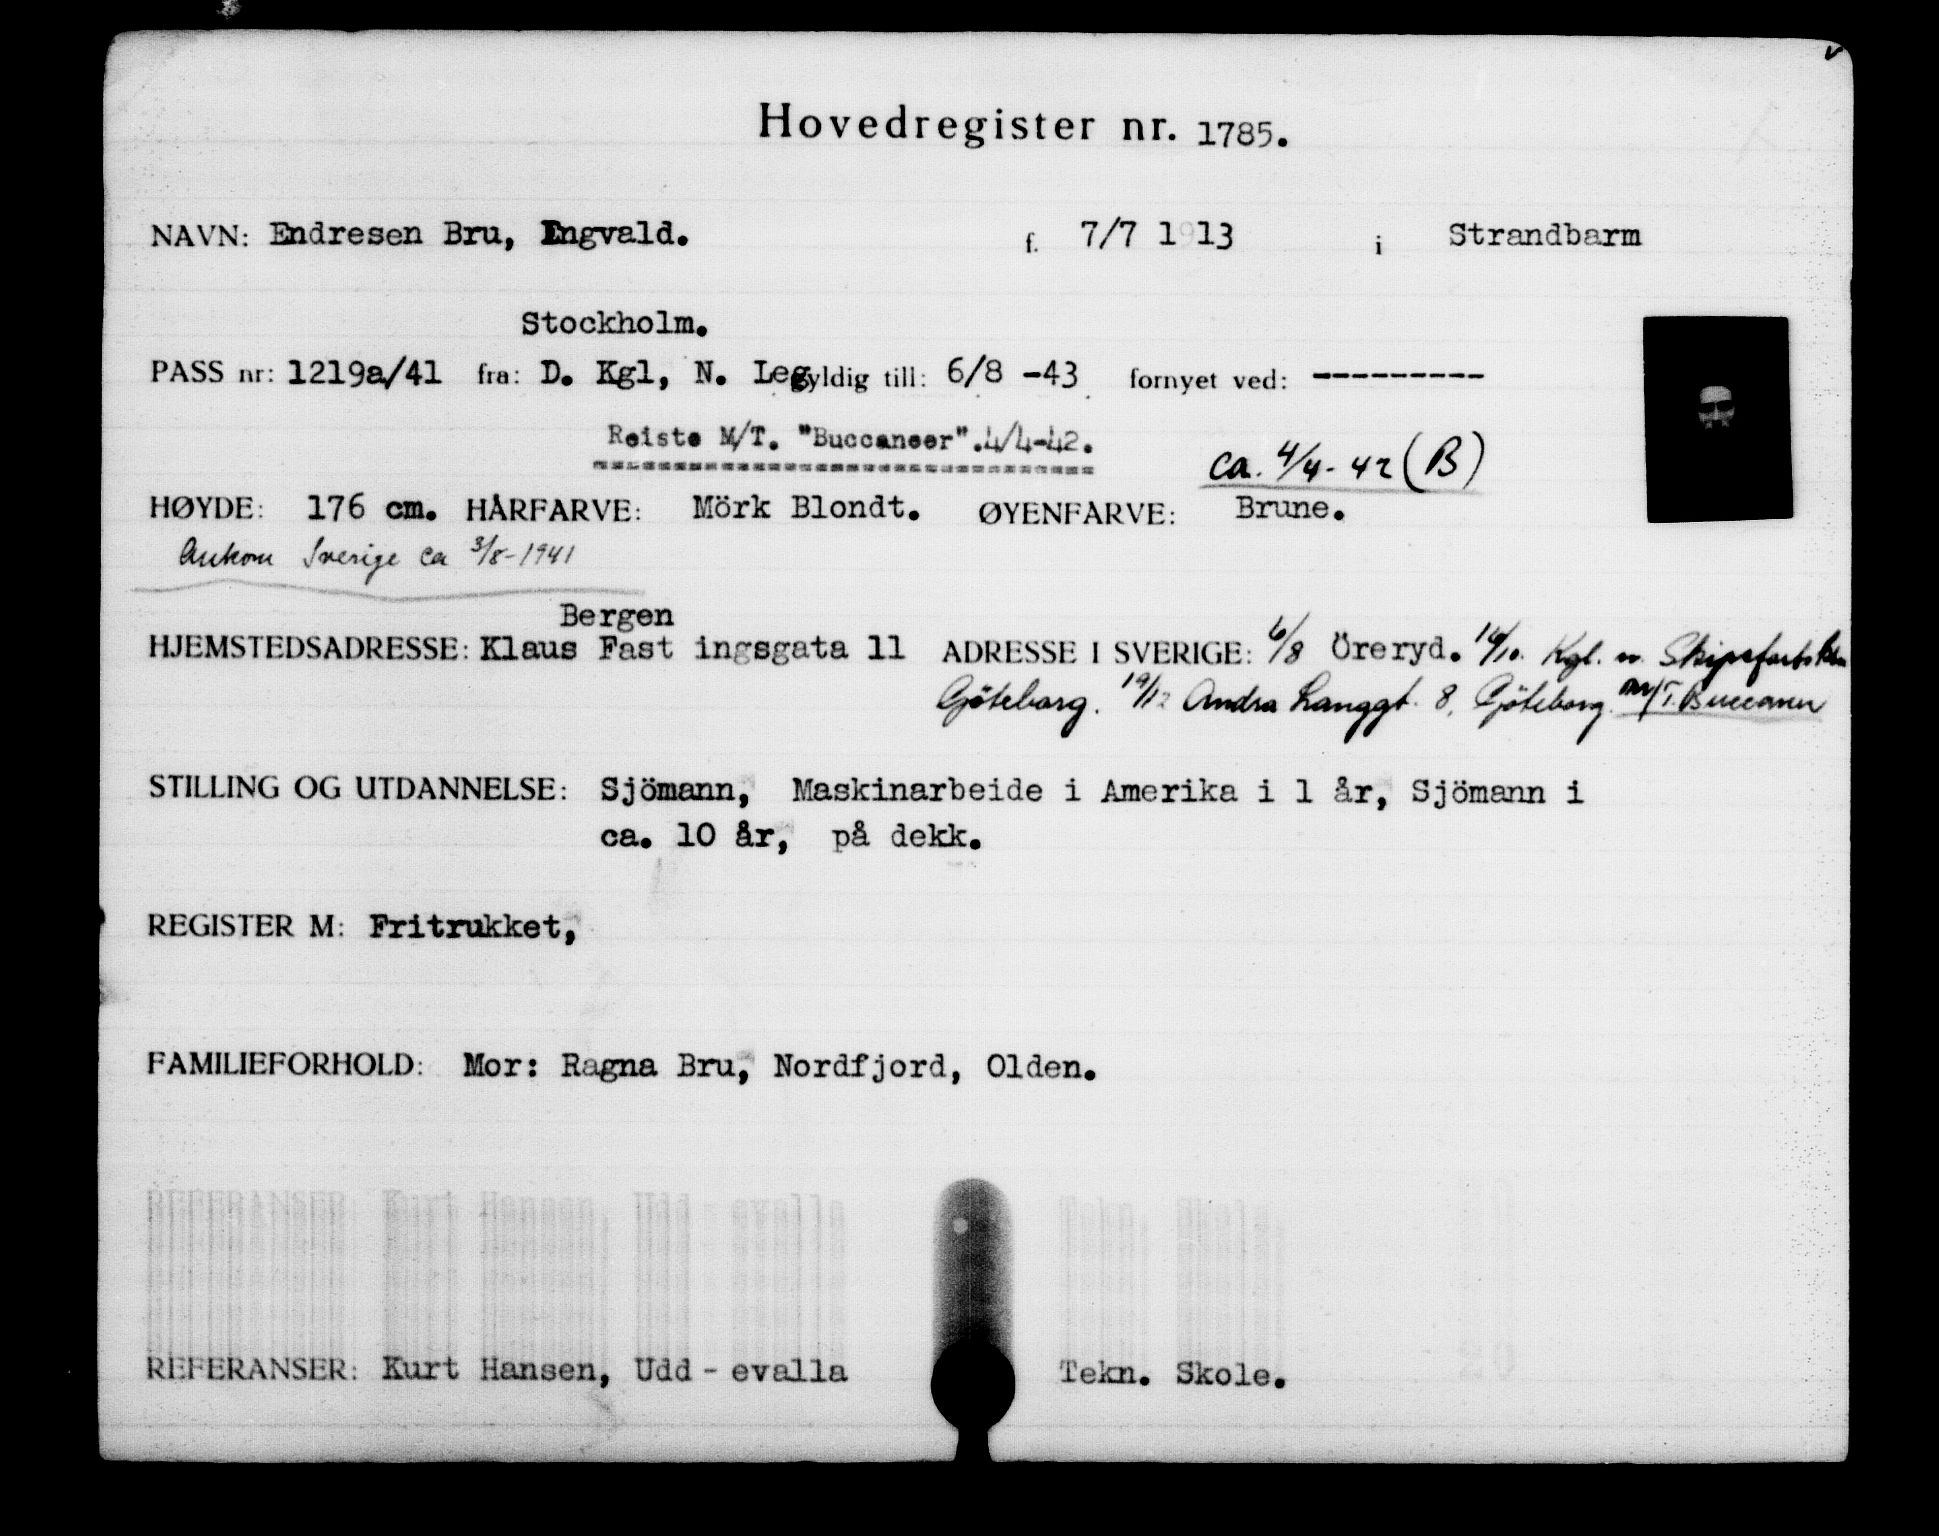 Hovedregister nr. 1785.
NAVN: Endresen Bru, Engvald. f. 7/7 1913 i Strandbarm
Stockholm.
PASS nr: 1219a/41 fra: D. Kgl, N. Leg gyldig till: 6/8 -43 fornyet ved: ---------
Reiste M/T. "Buccaneer".4/4-42.
ca. 4/4-42 (B)
HØYDE: 176 cm. HÅRFARVE: Mörk Blondt. ØYENFARVE: Brune.
Ankom Sverige ca 3/8-1941
Bergen
HJEMSTEDSADRESSE: Klaus Fast ingsgata 11 ADRESSE I SVERIGE: 6/8 Öreryd. 14/10. Kgl. n. Skipsfartsktr
Göteborg. 19/12 Andra Langgt. 8, Göteborg. M/T. Buccaneer
STILLING OG UTDANNELSE: Sjömann, Maskinarbeide i Amerika i 1 år, Sjömann i
ca. 10 år, på dekk.
REGISTER M: Fritrukket,
FAMILIEFORHOLD: Mor: Ragna Bru, Nordfjord, Olden.
REFERANSER: Kurt Hansen, Udd-evalla Tekn. Skole.